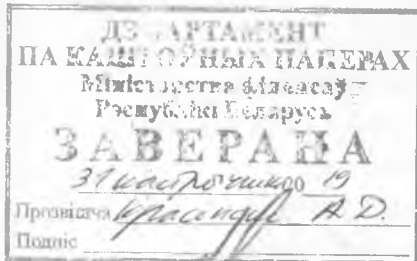 ДЭПАРТАМЕНТ
ПА КАШТОЎНЫХ ПАПЕРАХ
Міністэрства фінансаў
Рэспублікі Беларусь
ЗАВЕРАНА
19
Прозвішча А. D.
Подпіс